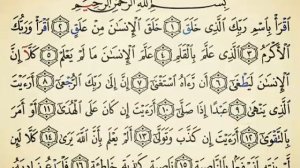 بِسْمِ ٱللَّهِ ٱلرَّحْمَٰنِ ٱلرَّحِيمِ
ٱقْرَأْ بِٱسْمِ رَبِّكَ ٱلَّذِى خَلَقَ ۝١ خَلَقَ ٱلْإِنسَٰنَ مِنْ عَلَقٍ ۝٢ ٱقْرَأْ وَرَبُّكَ
ٱلْأَكْرَمُ ۝٣ ٱلَّذِى عَلَّمَ بِٱلْقَلَمِ ۝٤ عَلَّمَ ٱلْإِنسَٰنَ مَا لَمْ يَعْلَمْ ۝٥ كَلَّآ إِنَّ
ٱلْإِنسَٰنَ لَيَطْغَىٰٓ ۝٦ أَن رَّءَاهُ ٱسْتَغْنَىٰٓ ۝٧ إِنَّ إِلَىٰ رَبِّكَ ٱلرُّجْعَىٰٓ ۝٨ أَرَءَيْتَ
ٱلَّذِى يَنْهَىٰ ۝٩ عَبْدًا إِذَا صَلَّىٰٓ ۝١٠ أَرَءَيْتَ إِن كَانَ عَلَى ٱلْهُدَىٰٓ ۝١١ أَوْ أَمَرَ
بِٱلتَّقْوَىٰٓ ۝١٢ أَرَءَيْتَ إِن كَذَّبَ وَتَوَلَّىٰٓ ۝١٣ أَلَمْ يَعْلَم بِأَنَّ ٱللَّهَ يَرَىٰ ۝١٤ كَلَّا لَئِن